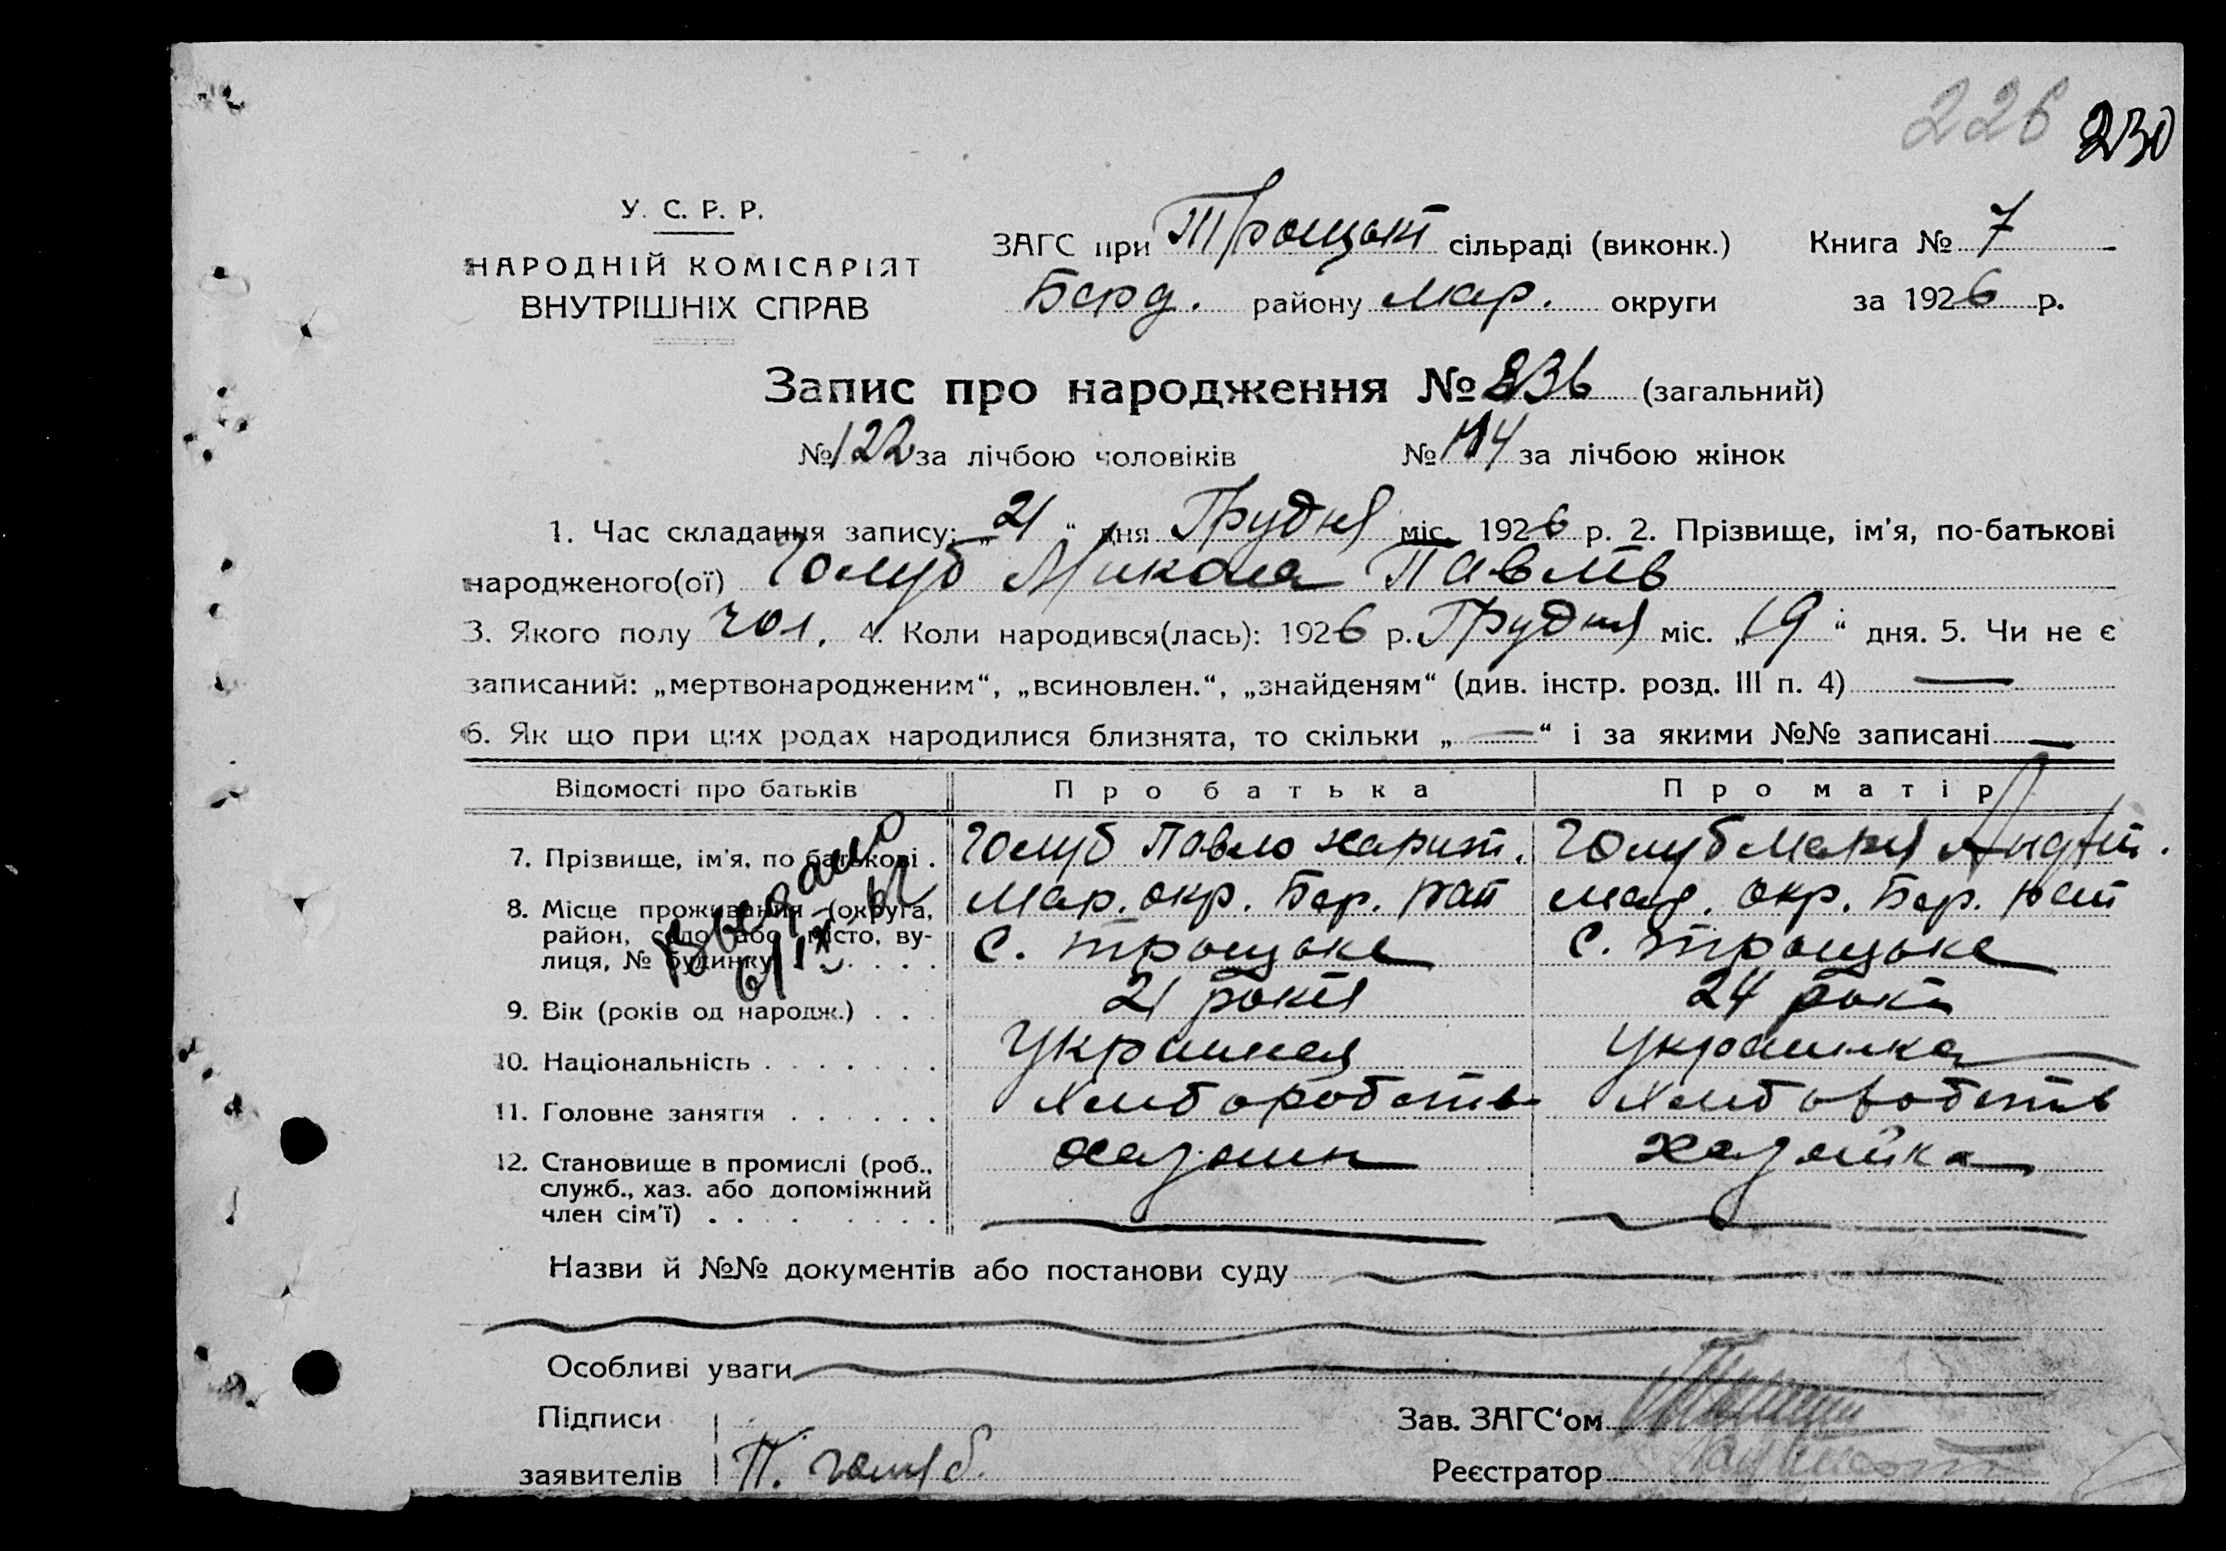 226 230
У. С. Р. Р.
НАРОДНІЙ КОМІСАРІЯТ
ВНУТРІШНІХ СПРАВ
ЗАГС при Троцькій сільраді (виконк.) Книга № 7
Берд. району Мар. округи за 1926 р.
Запис про народження № 236 (загальний)
№ 122 за лічбою чоловіків № 114 за лічбою жінок
1. Час складання запису: „21“ дня Грудня міс. 1926 р. 2. Прізвище, ім'я, по-батькові
народженого(ої) Голуб Микола Павлів
3. Якого полу чол. 4. Коли народився(лась): 1926 р. Грудня міс. „19“ дня. 5. Чи не є
записаний: „мертвонародженим“, „всиновлен.“, „знайденям“ (див. інстр. розд. III п. 4) —
6. Як що при цих родах народилися близнята, то скільки „—“ і за якими №№ записані —
Відомості про батьків Про батька Про матір
7. Прізвище, ім'я, по батькові . Голуб Павло Харит. Голуб Марія
8. Місце проживання (округа, Мар. окр. Бер. рай Мар. окр. Бер. рай
район, село або місто, ву- С. Троцьке С. Троцьке
лиця, № будинку . . . . . .
9. Вік (років од народж.) . . . 21 років 24 років
10. Національність . . . . . . . Украинец Украинка
11. Головне заняття . . . . . . Хлиборобств Хлиборобств
12. Становище в промислі (роб., Хазяин Хазяйка
служб., хаз. або допоміжний
член сім'ї) . . . . . . . .
Выдано
6/IX 62
Назви й №№ документів або постанови суду
Особливі уваги
Підписи Зав. ЗАГС‘ом
заявителів П. Голуб Реєстратор